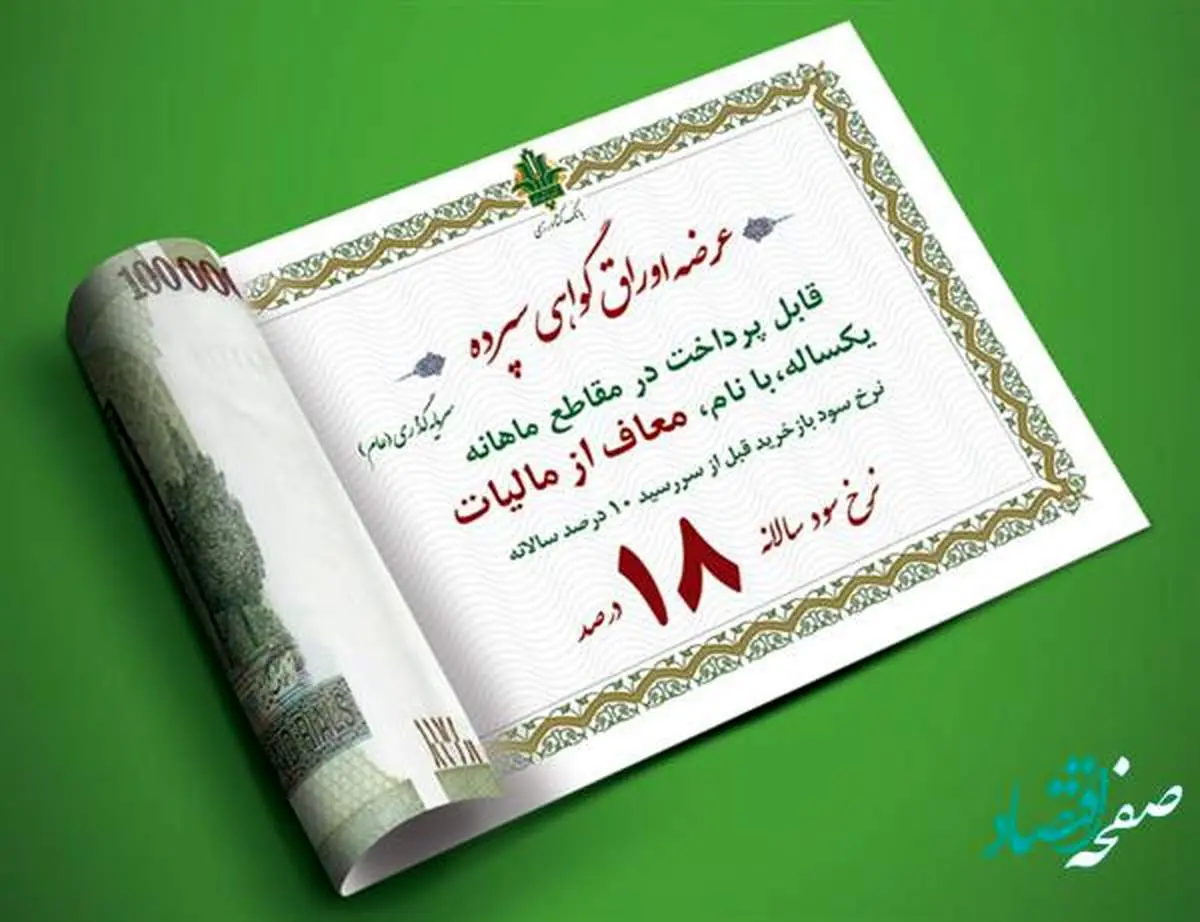 بانک کشاورزی
عرضه اوراق گواهی سپرده
سرمایه گذاری (عام)
قابل پرداخت در مقاطع ماهانه
یکساله، با نام، معاف از مالیات
نرخ سود بازخرید قبل از سررسید ۱۰ درصد سالانه
نرخ سود سالانه
۱۸ درصد
100000
RIALS
صفحه اقتصاد